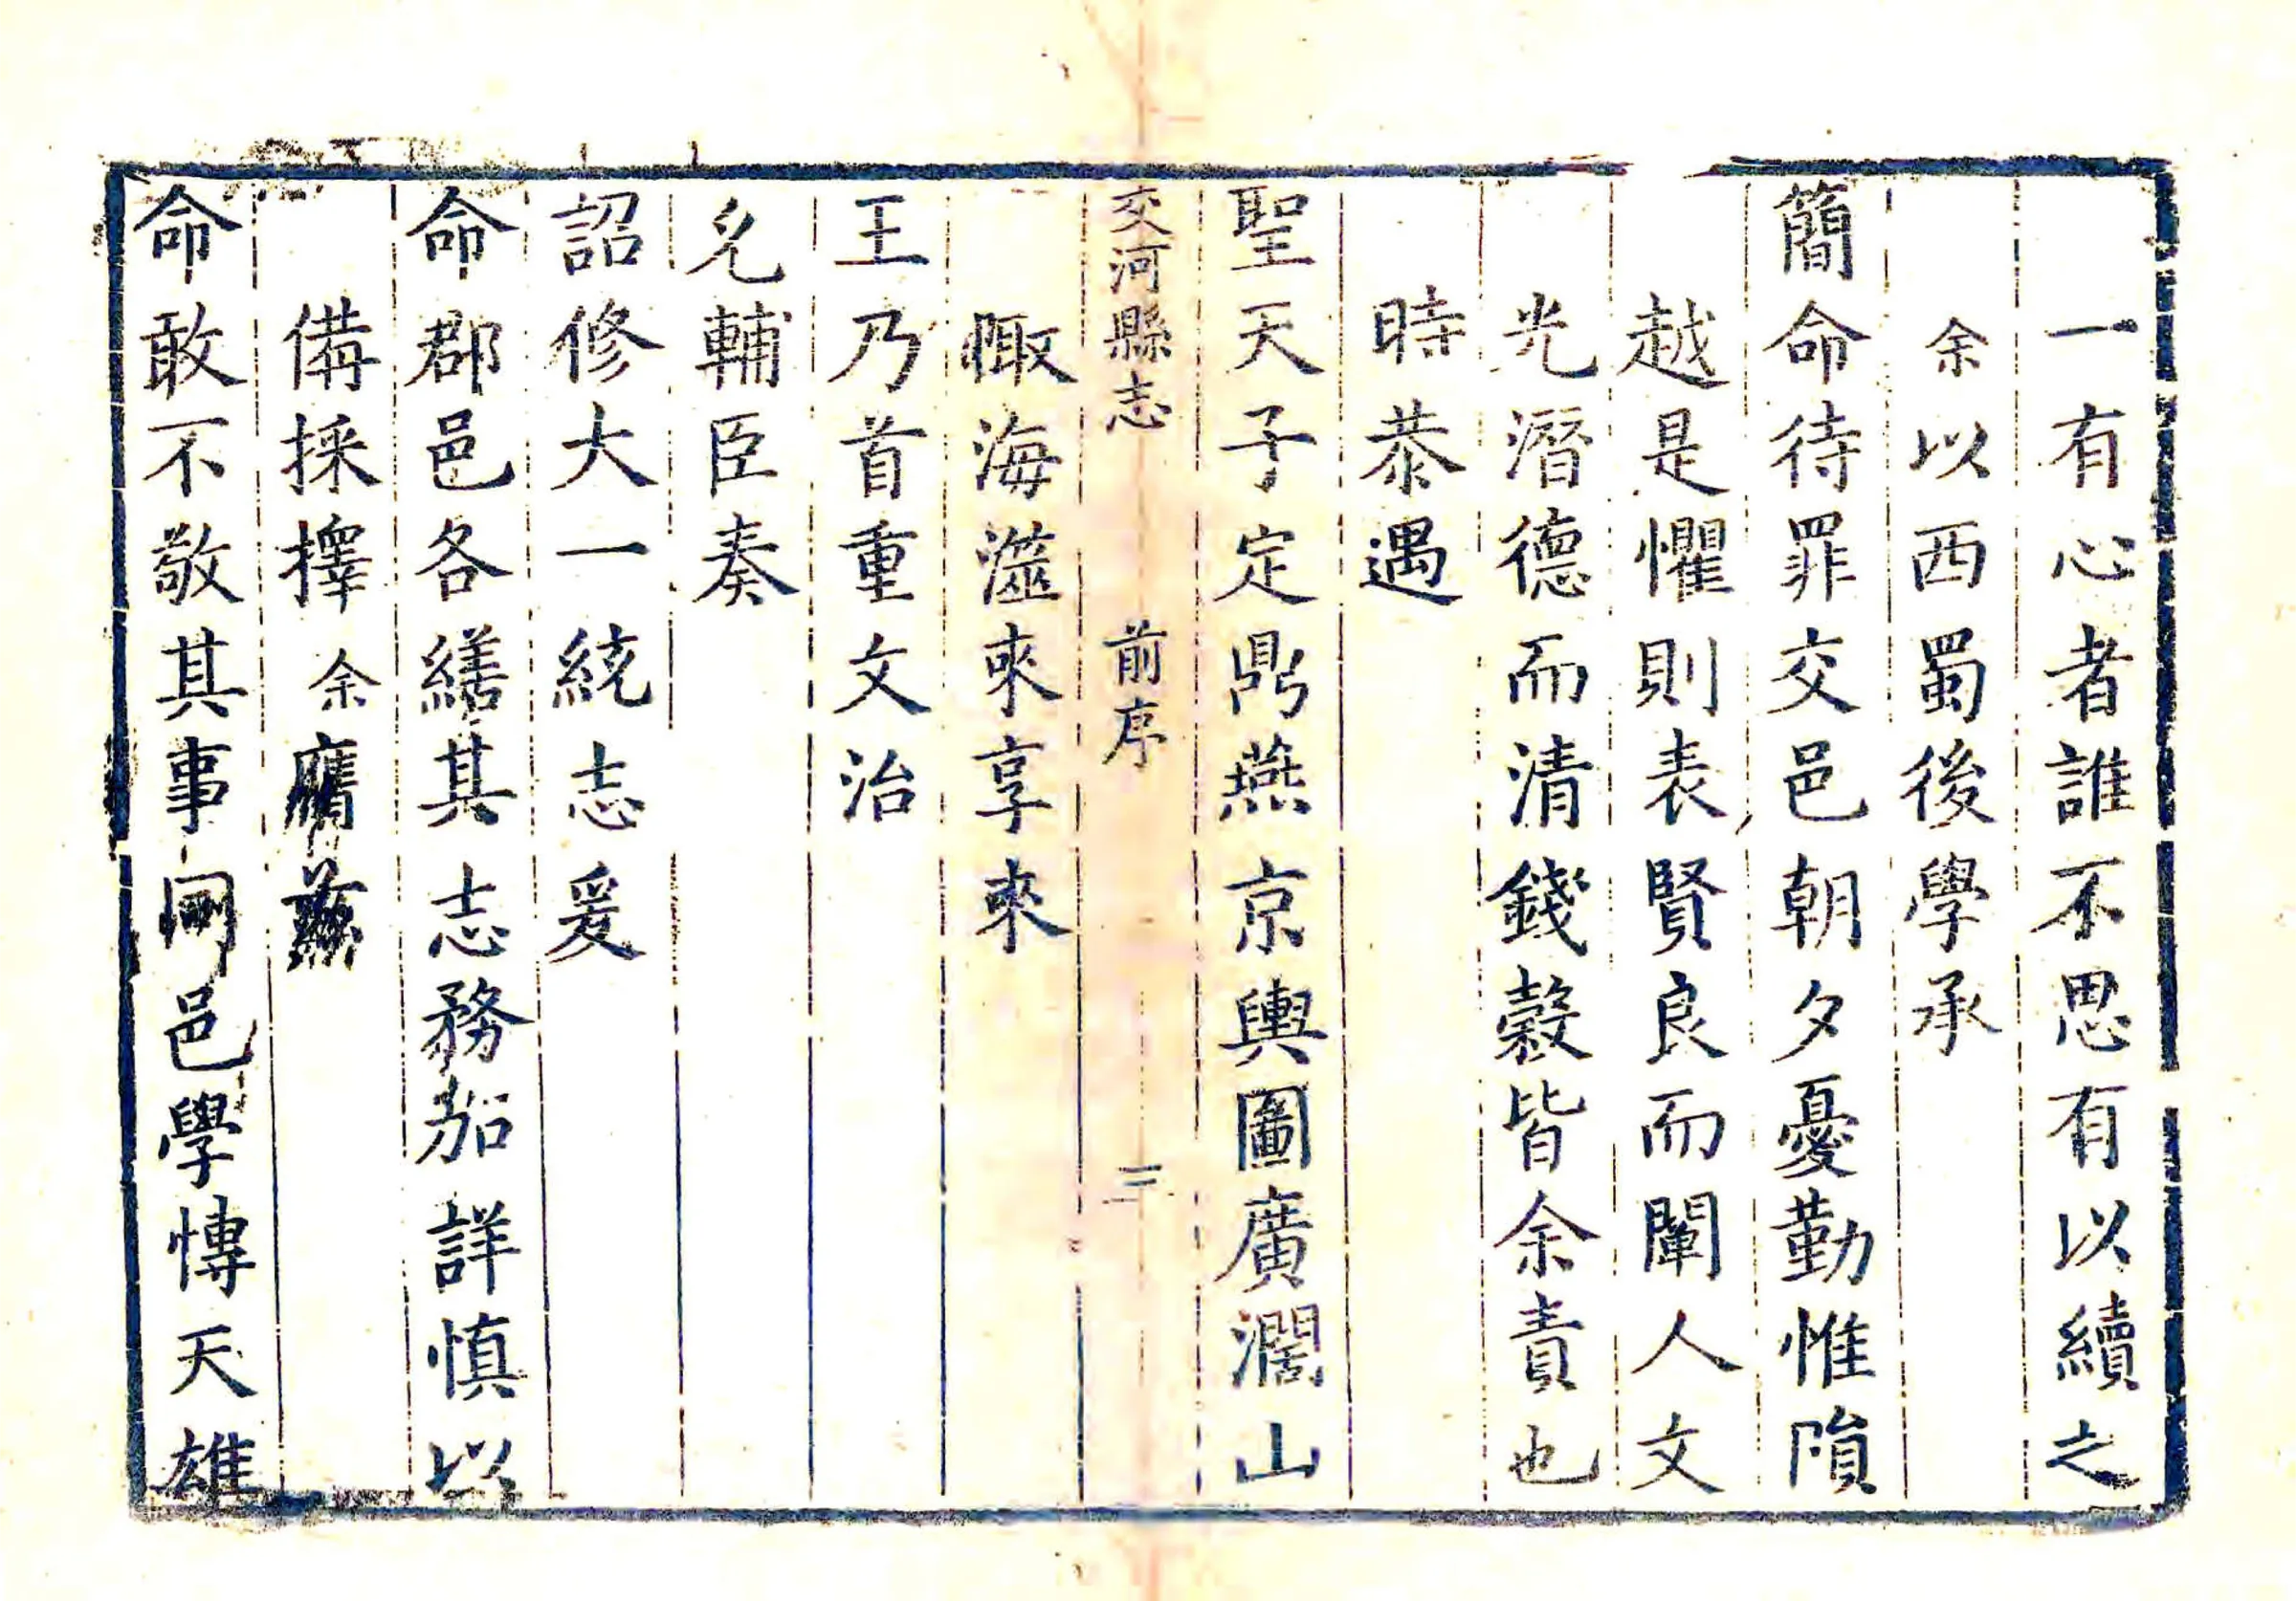 一有心者誰不思有以續之
余以西蜀後學承
簡命待罪交邑朝夕憂勤惟隕
越是懼則表賢良而闡人文
光潛德而清錢穀皆余責也
時恭遇
聖天子定鼎燕京輿圖廣濶山
交河縣志 前序 三
陬海澨來享來
王乃首重文治
允輔臣奏
詔修大一統志爰
命郡邑各繕其志務加詳慎以
備採擇余膺茲
命敢不敬其事同邑學博天雄